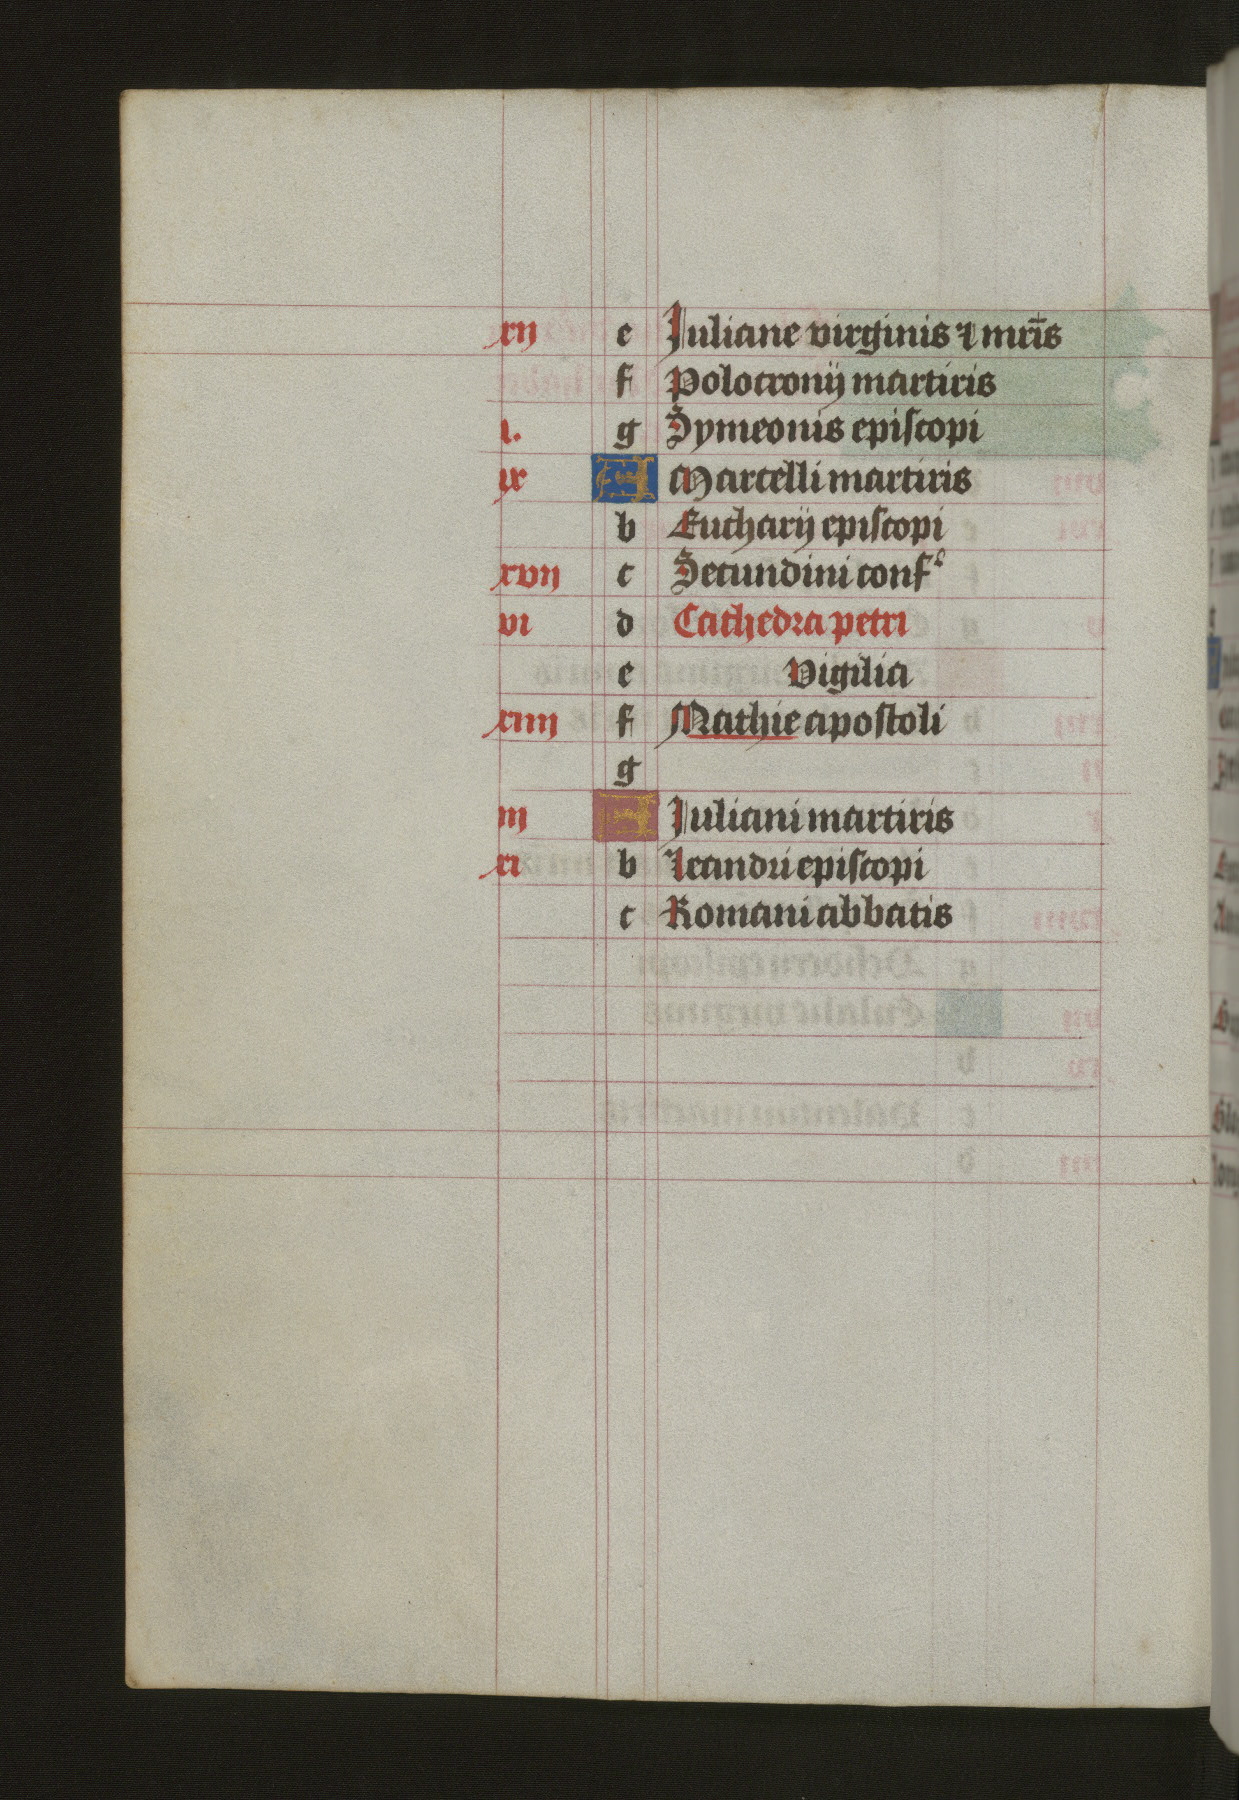 xij e Juliane virginis ⁊ mr̄is
f Polocronij martiris
i. g Symeonis episcopi
ix A Marcelli martiris
b Eucharij episcopi
xvij c Secundini conf
vi d Cathedra petri
e Vigilia
xiiij f Mathie apostoli
g
iij A Juliani martiris
xi b Leandri episcopi
c Romani abbatis